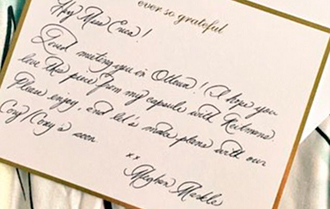 ever so grateful
Hey Miss Erica!
Loved meeting you in Ottawa! I hope you
love the piece from my capsule with Reitmans
Please enjoy, and let's make plans with our
Cory/Cory's soon
xx
Meghan Markle